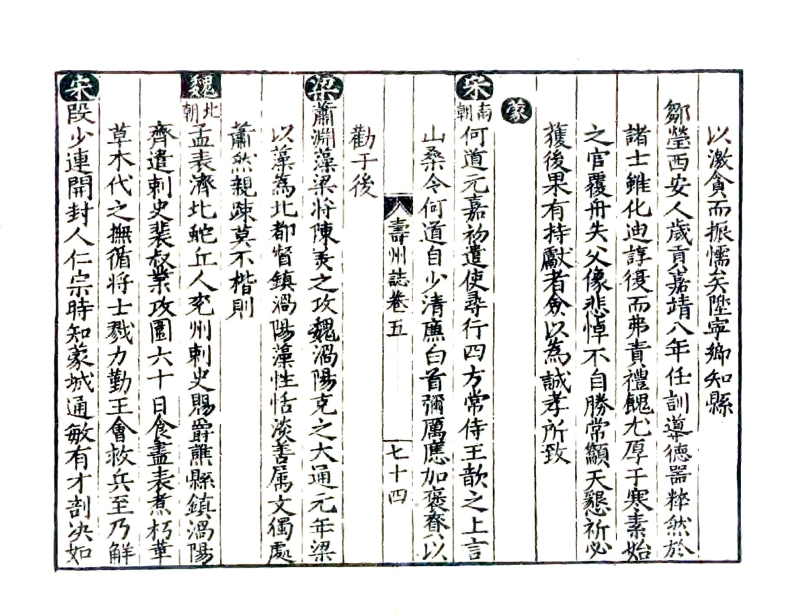 以激貪而振懦矣陞寧鄉知縣
鄒瑩西安人歲貢嘉靖八年任訓導德器粹然於
諸士雖化迪諄復而弗責禮餽尤厚于寒素始
之官覆舟失父像悲悼不自勝常籲天懇祈必
獲後果有持獻者僉以為誠孝所致
蒙
宋南朝何道元嘉初遣使尋行四方常侍王歆之上言
山桑令何道自少清廉白首彌厲應加褒賚以
壽州誌卷五 七十四
勸于後
梁蕭淵藻梁將陳慶之攻魏渦陽克之大通元年梁
以藻為北都督鎮渦陽藻性恬淡善属文獨處
蕭然親踈莫不楷則
魏北朝孟表濟北虵丘人兖州刺史賜爵譙縣鎮渦陽
齊遣刺史裴叔業攻圍六十日食盡表煮朽革
草木代之撫循將士戮力勤王會救兵至乃解
宋段少連開封人仁宗時知蒙城通敏有才剖决如